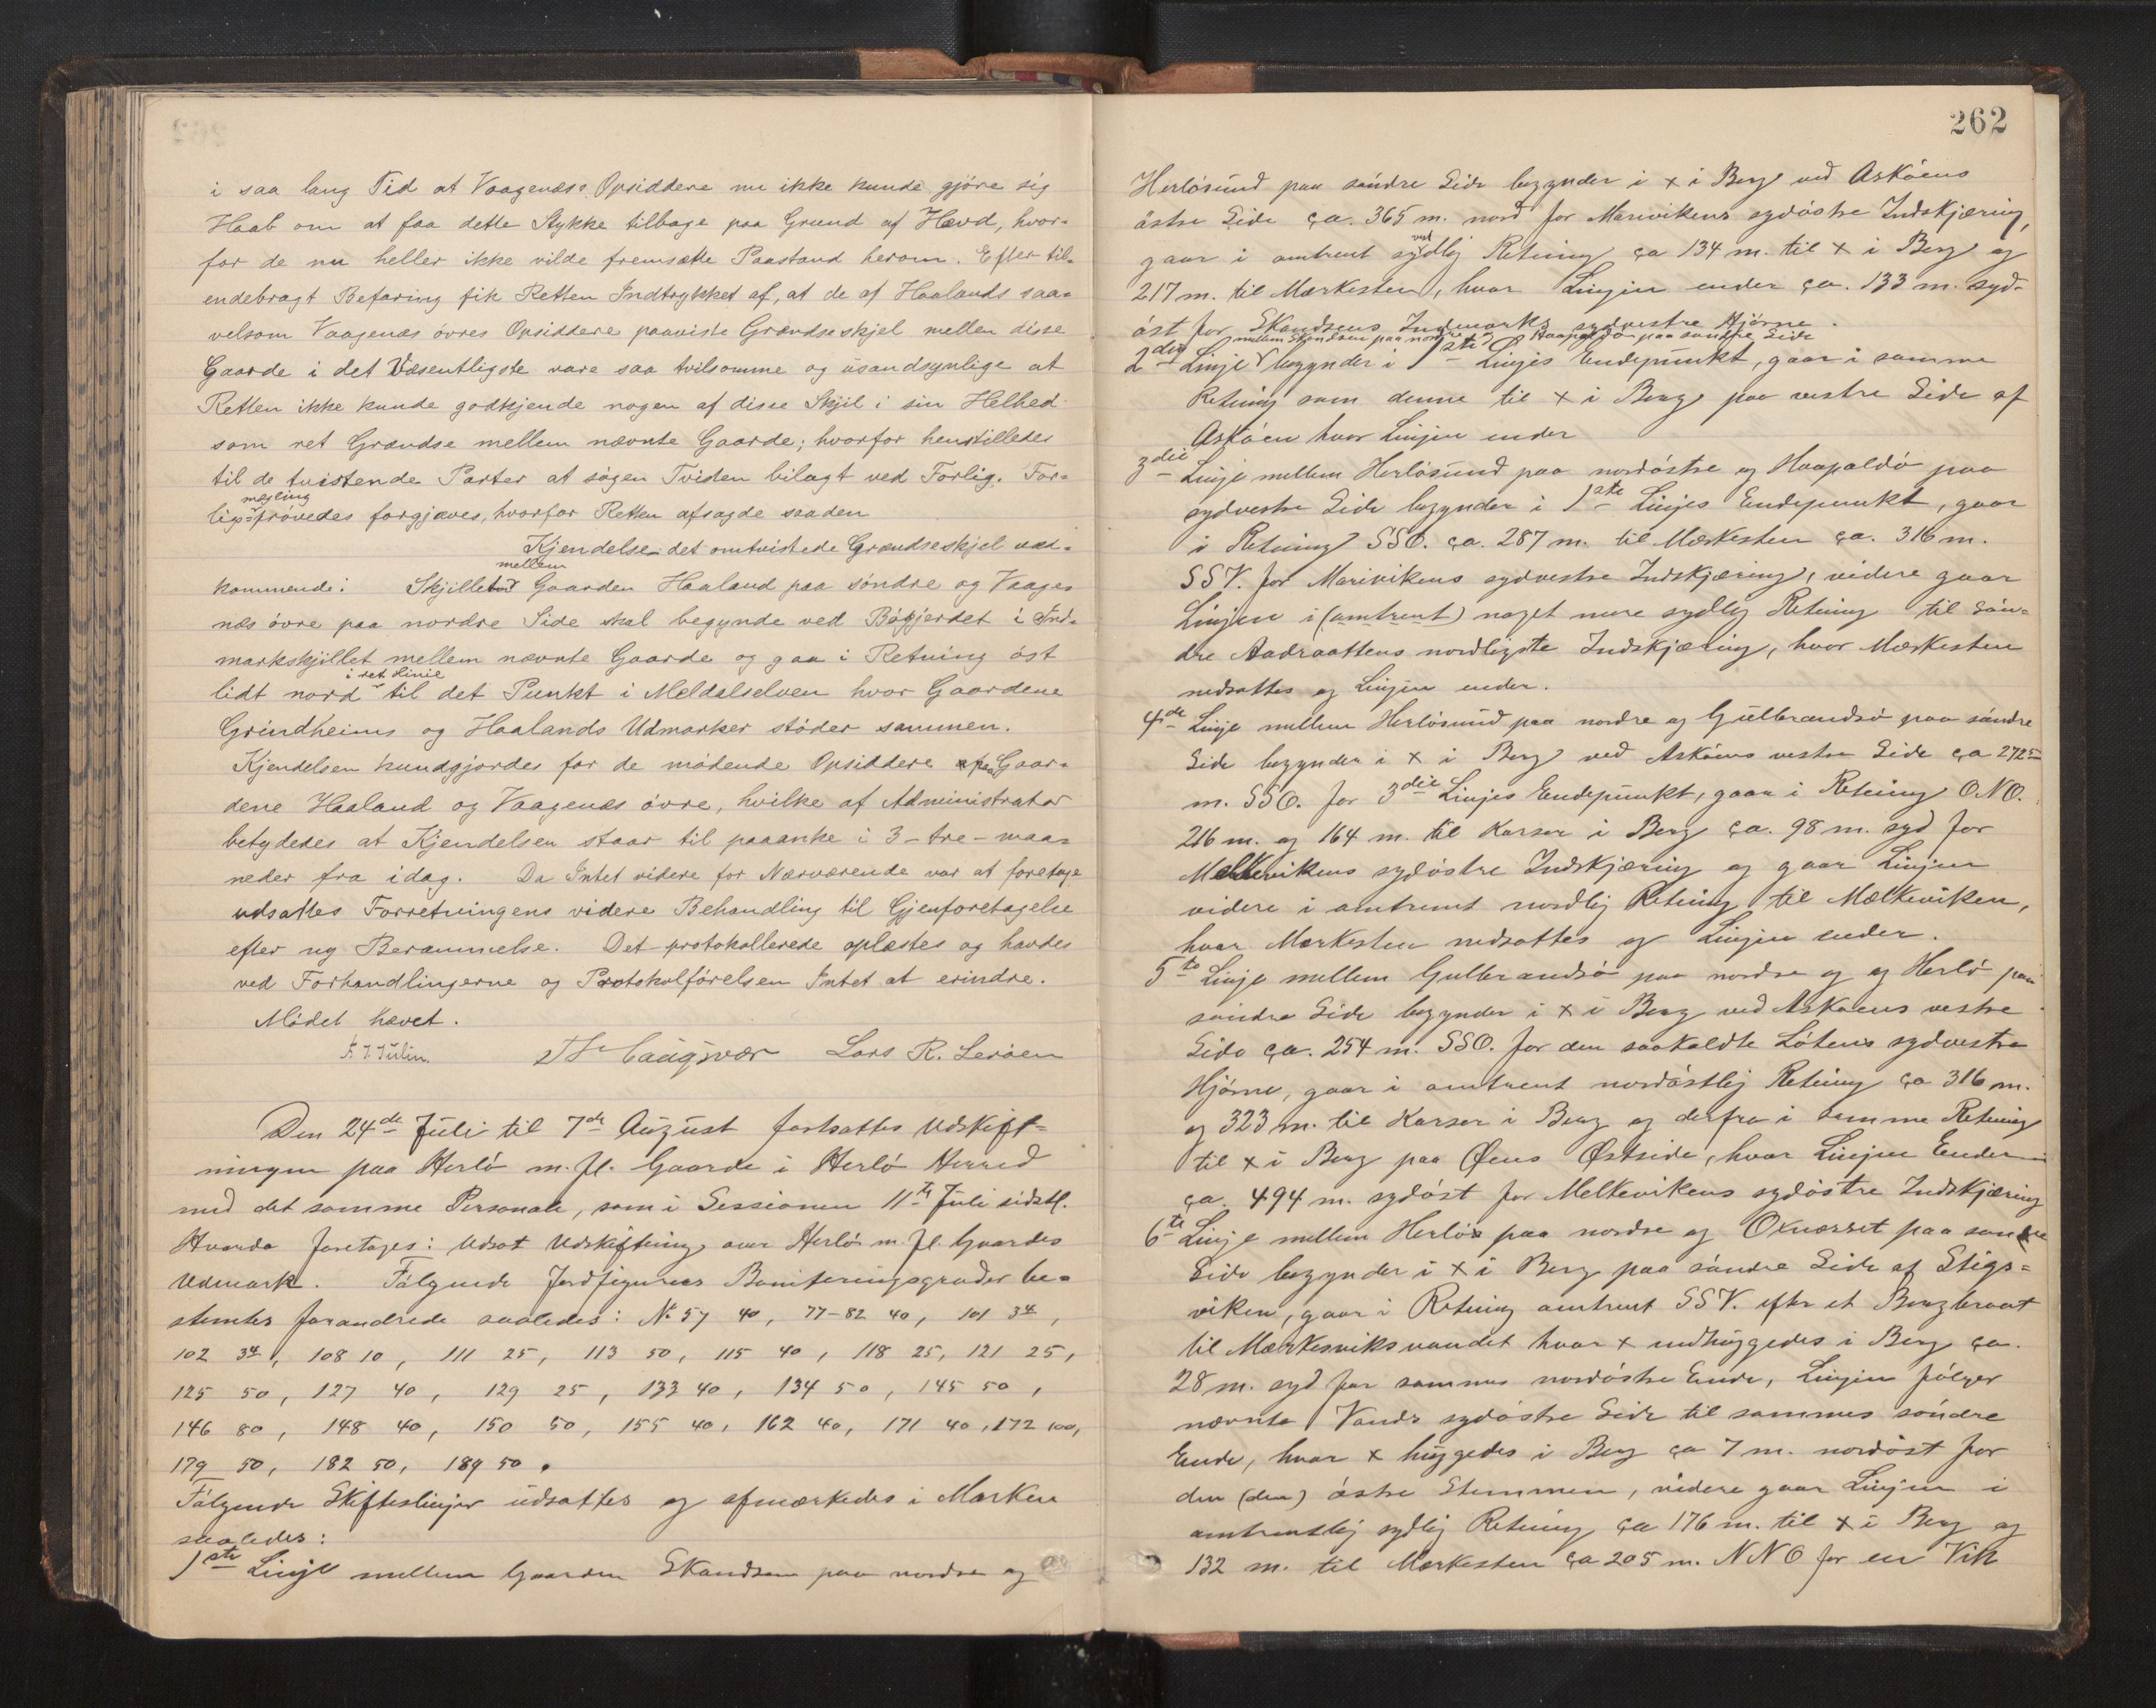 i saa lang Tid at Vaagenæss Opsiddere nu ikke kunde gjöre sig
Haab om at faa dette Stykke tilbage paa Grund af Hævd, hvor-
for de nu heller ikke vilde fremsætte Paastand herom. Efter til-
endebragt Befaring fik Retten Indtrykket af, at de af Haalands saa-
velsom Vaagenæs övres Opsiddere paaviste Grændseskjel mellen disse
Gaarde i det Væsentligste vare saa tvilsomme og usandsynlige at
Retten ikke kunde godkjende nogen af disse Skjil i sin Helhed
som ret Grændse mellem nævnte Gaarde; hvorfor henstilledes
til de tvistende Parter at sögen Tvisten bilagt ved Forlig. For-
mægling
ligs prövedes forgjæves, hvorfor Retten afsagde saaden
Kjendelse det omtvistede Grændseskjel ved-
mellem
kommende: Skjillet Gaarden Haaland paa söndre og Vaage-
næs övre paa nordre Side skal begynde ved Bögjerdet i Ind-
markskjillet mellem nævnte Gaarde og gaa i Retning öst
i ret Linie
lidt nord til det Punkt i Mældalselven hvor Gaardene
Grindheims og Haalands Udmarker stöder sammen.
Kjendelsen kundgjordes for de mödende Opsiddere paa Gaar-
dene Haaland og Vaagenæs övre, hvilke af Administrator
betydedes at Kjendelsen staar til paaanke i 3 - tre - maa-
neder fra idag. Da Intet videre for Nærværende var at foretage
udsattes Forretningens videre Behandling til Gjenforetagelse
efter ny Berammelse. Det protokollerede oplæstes og havdes
ved Forhandlingerne og Protokolförelsen Intet at erindre.
Mödet hævet.
Lars R. Leröen
Den 24de Juli til 7de August fortsattes Udskift-
ningen paa Herlö m. fl. Gaarde i Herlö Herred
med det samme Personale, som i Sessionen 11te Juli sidstl.
Hvorda foretoges: Udsat Udskiftning over Herlö m. fl. Gaardes
Udmark. Fölgende Jordfigurers Boniteringsgrader be-
stemtes forandrede saaledes: No 57 40, 77-82 40, 101 34,
102 34, 108 10, 111 25, 113 50, 115 40, 118 25, 121 25,
125 50, 127 40, 129 25, 133 40, 134 50, 145 50,
146 80, 148 40, 150 50, 155 40, 162 40, 171 40, 172 100,
179 50, 182 50, 189 50.
Fölgende Skifteslinjer udsattes og afmærkedes i Marken
saaledes:
1ste Linje mellem Gaarden Skandsen paa nordre og
262
Herlösund paa söndre Side begynder i x i Berg ved Asköens
östre Side ca. 365 m. nord for Marivikens sydöstre Indskjæring,
gaar i omtrent sydlig Retning ca 134 m. til x i Berg og
217 m. til Mærkesten, hvor Linjen ender ca. 133 m. syd-
öst for Skandsens Indmarks sydvestre Hjörne.
mellem Skandsen paa nordre og Haapaldö paa söndre Side
2den Linje begynder i 1ste Linjes Endepunkt, gaar i samme
Retning som denne til x i Berg paa vestre Side af
Asköen hvor Linjen ender
3die Linje mellem Herlösund paa nordöstre og Haapaldö paa
sydvestre Side begynder i 1ste Linjes Endepunkt, gaar
i Retning SSO. ca. 287 m. til Mærkesten ca. 316 m.
SSV. for Marivikens sydvestre Indskjæring, videre gaar
Linjen i (omtrent) noget mere sydlig Retning til sön-
dre Aadraattens nordligste Indskjæring, hvor Mærkesten
nedsattes og Linjen ender.
4de Linje mellem Herlösund paa nordre og Gulbrandsö paa söndre
Side begynder i x i Berg ved Asköens vestre Side ca 272
m. SSO. for 3die Linjes Endepunkt, gaar i Retning O.N.O.
216 m. og 164 m. til Korser i Berg ca. 98 m. syd for
Melkevikens sydöstre Indskjæring og gaar Linjen
videre i omtrent nordlig Retning til Mælkeviken,
hvor Mærkesten nedsattes og Linjen ender.
5te Linje mellem Gulbrandsö paa nordre og og Herlö paa
söndre Side begynder i x i Berg ved Asköens vestre
Side ca. 254 m. SSO. for den saakaldte Lötens sydvestre
Hjörne, gaar i omtrent nordöstlig Retning ca 316 m.
og 323 m. til Korser i Berg og derfra i samme Retning
til x i Berg paa Øens Østside, hvor Linjen Ender
ca. 494 m. sydöst for Melkevikens sydöstre Indskjæring
6te Linje mellem Herlö paa nordre og Oxnæsset paa söndre
Side begynder i x i Berg paa söndre Side af Stigs-
viken, gaar i Retning omtrent SSV. efter et Bergbrat
til Mærkesviksvandet hvor x indhuggedes i Berg ca.
28 m. syd for sammes nordöstre Ende, Linjen fölger
nævnte Vands sydöstre Side til sammes söndre
Ende, hvor x huggedes i Berg ca 7 m. nordöst for
den (den) östre Stemmen, videre gaar Linjen i
omtrentlig sydlig Retning ca 176 m. til x i Berg og
132 m. til Mærkesten ca 205 m. NNO for en Vik